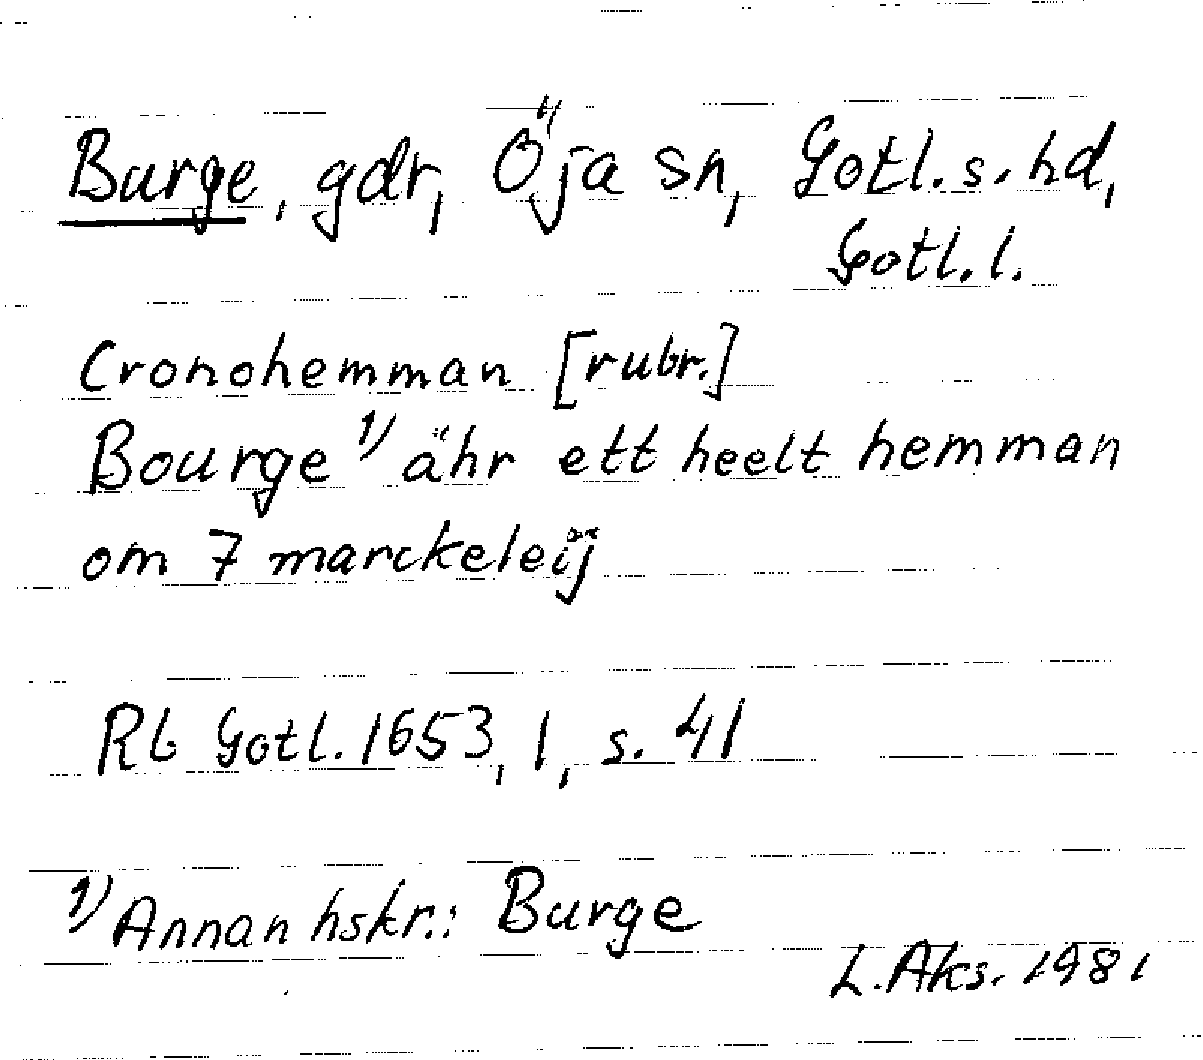 Burge, gdr, Öja sn, Gotl. s. hd,
Gotl. l.
Cronohemman [rubr.]
Bourge 1) ähr ett heelt hemman
om 7 marckeleij
Rb Gotl. 1653, 1, s. 41
1) Annan hskr.: Burge
L. Aks. 1981